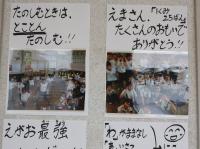 たのしむときは、
とことん
たのしむ!!
えがお最強
えまさん、「1くみ
25ばん」
たくさんのおもいで
ありがとう!!